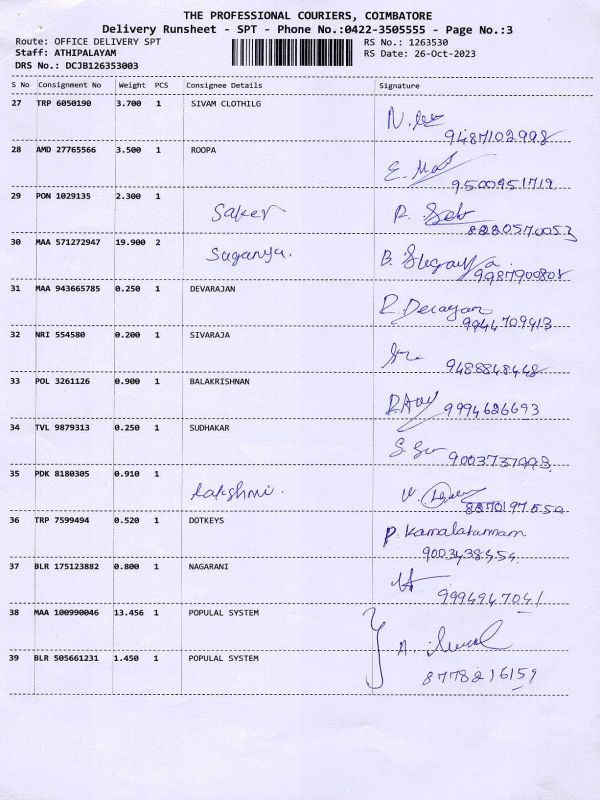 THE PROFESSIONAL COURIERS, COIMBATORE
Delivery Runsheet - SPT - Phone No.:0422-3505555 - Page No.:3
Route: OFFICE DELIVERY SPT RS No.: 1263530
Staff: ATHIPALAYAM RS Date: 26-Oct-2023
DRS No.: DCJB126353003
S No Consignment No Weight PCS Consignee Details Signature
27 TRP 6050190 3.700 1 SIVAM CLOTHILG
9487102998
28 AMD 27765566 3.500 1 ROOPA
9500951719
29 PON 1029135 2.300 1
Saker
30 MAA 571272947 19.900 2 Suganya.
31 MAA 943665785 0.250 1 DEVARAJAN
9944709413
32 NRI 554580 0.200 1 SIVARAJA
9488848448
33 POL 3261126 0.900 1 BALAKRISHNAN
9994626693
34 TVL 9879313 0.250 1 SUDHAKAR
35 PDK 8180305 0.910 1
Lakshmi.
36 TRP 7599494 0.520 1 DOTKEYS
9003438454
37 BLR 175123882 0.800 1 NAGARANI
9994947041
38 MAA 100990046 13.456 1 POPULAL SYSTEM
39 BLR 505661231 1.450 1 POPULAL SYSTEM
8778216159